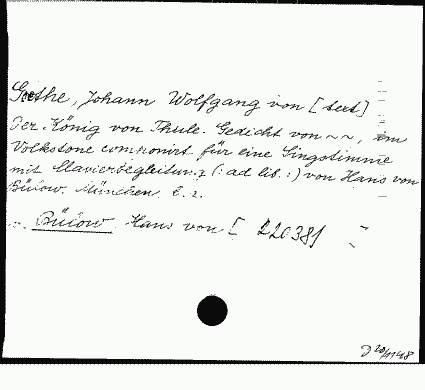 Goethe, Johann Wolfgang von [text]
Der König von Thule. Gedicht von ~~, im
Volkstone componirt für eine Singstimme
mit Clavierbegleitung (: ad lib. :) von Hans von
Bülow. München
Bülow, Hans von [ 22038]